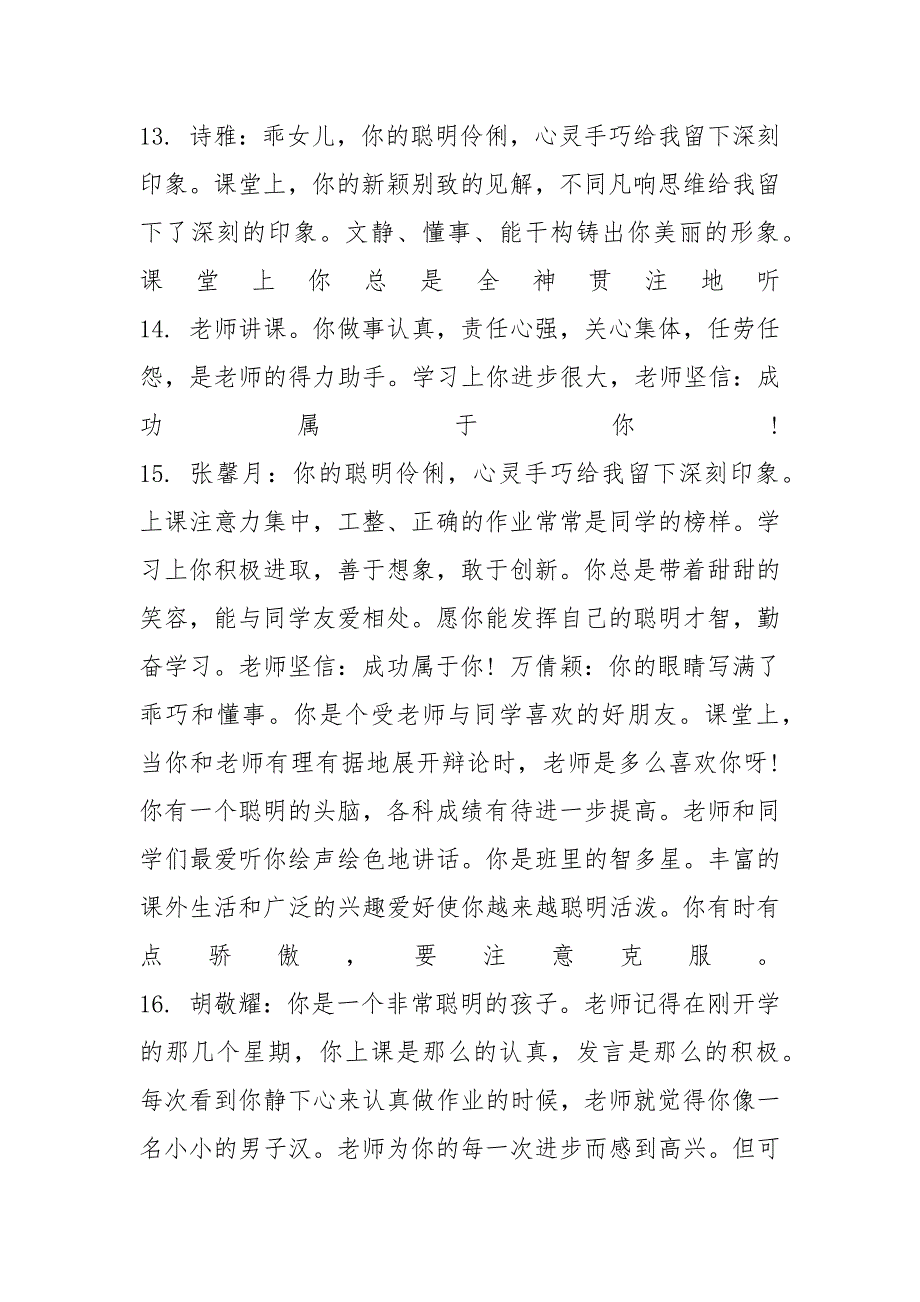 13. 诗雅：乖女儿，你的聪明伶俐，心灵手巧给我留下深刻
印象。课堂上，你的新颖别致的见解，不同凡响思维给我留
下了深刻的印象。文静、懂事、能干构铸出你美丽的形象。
课堂上你总是全神贯注地听
14. 老师讲课。你做事认真，责任心强，关心集体，任劳任
怨，是老师的得力助手。学习上你进步很大，老师坚信：成
功属于你!
15. 张馨月：你的聪明伶俐，心灵手巧给我留下深刻印象。
上课注意力集中，工整、正确的作业常常是同学的榜样。学
习上你积极进取，善于想象，敢于创新。你总是带着甜甜的
笑容，能与同学友爱相处。愿你能发挥自己的聪明才智，勤
奋学习。老师坚信：成功属于你! 万倩颖：你的眼睛写满了
乖巧和懂事。你是个受老师与同学喜欢的好朋友。课堂上，
当你和老师有理有据地展开辩论时，老师是多么喜欢你呀!
你有一个聪明的头脑，各科成绩有待进一步提高。老师和同
学们最爱听你绘声绘色地讲话。你是班里的智多星。丰富的
课外生活和广泛的兴趣爱好使你越来越聪明活泼。你有时有
点骄傲，要注意克服。
16. 胡敬耀：你是一个非常聪明的孩子。老师记得在刚开学
的那几个星期，你上课是那么的认真，发言是那么的积极。
每次看到你静下心来认真做作业的时候，老师就觉得你像一
名小小的男子汉。老师为你的每一次进步而感到高兴。但可